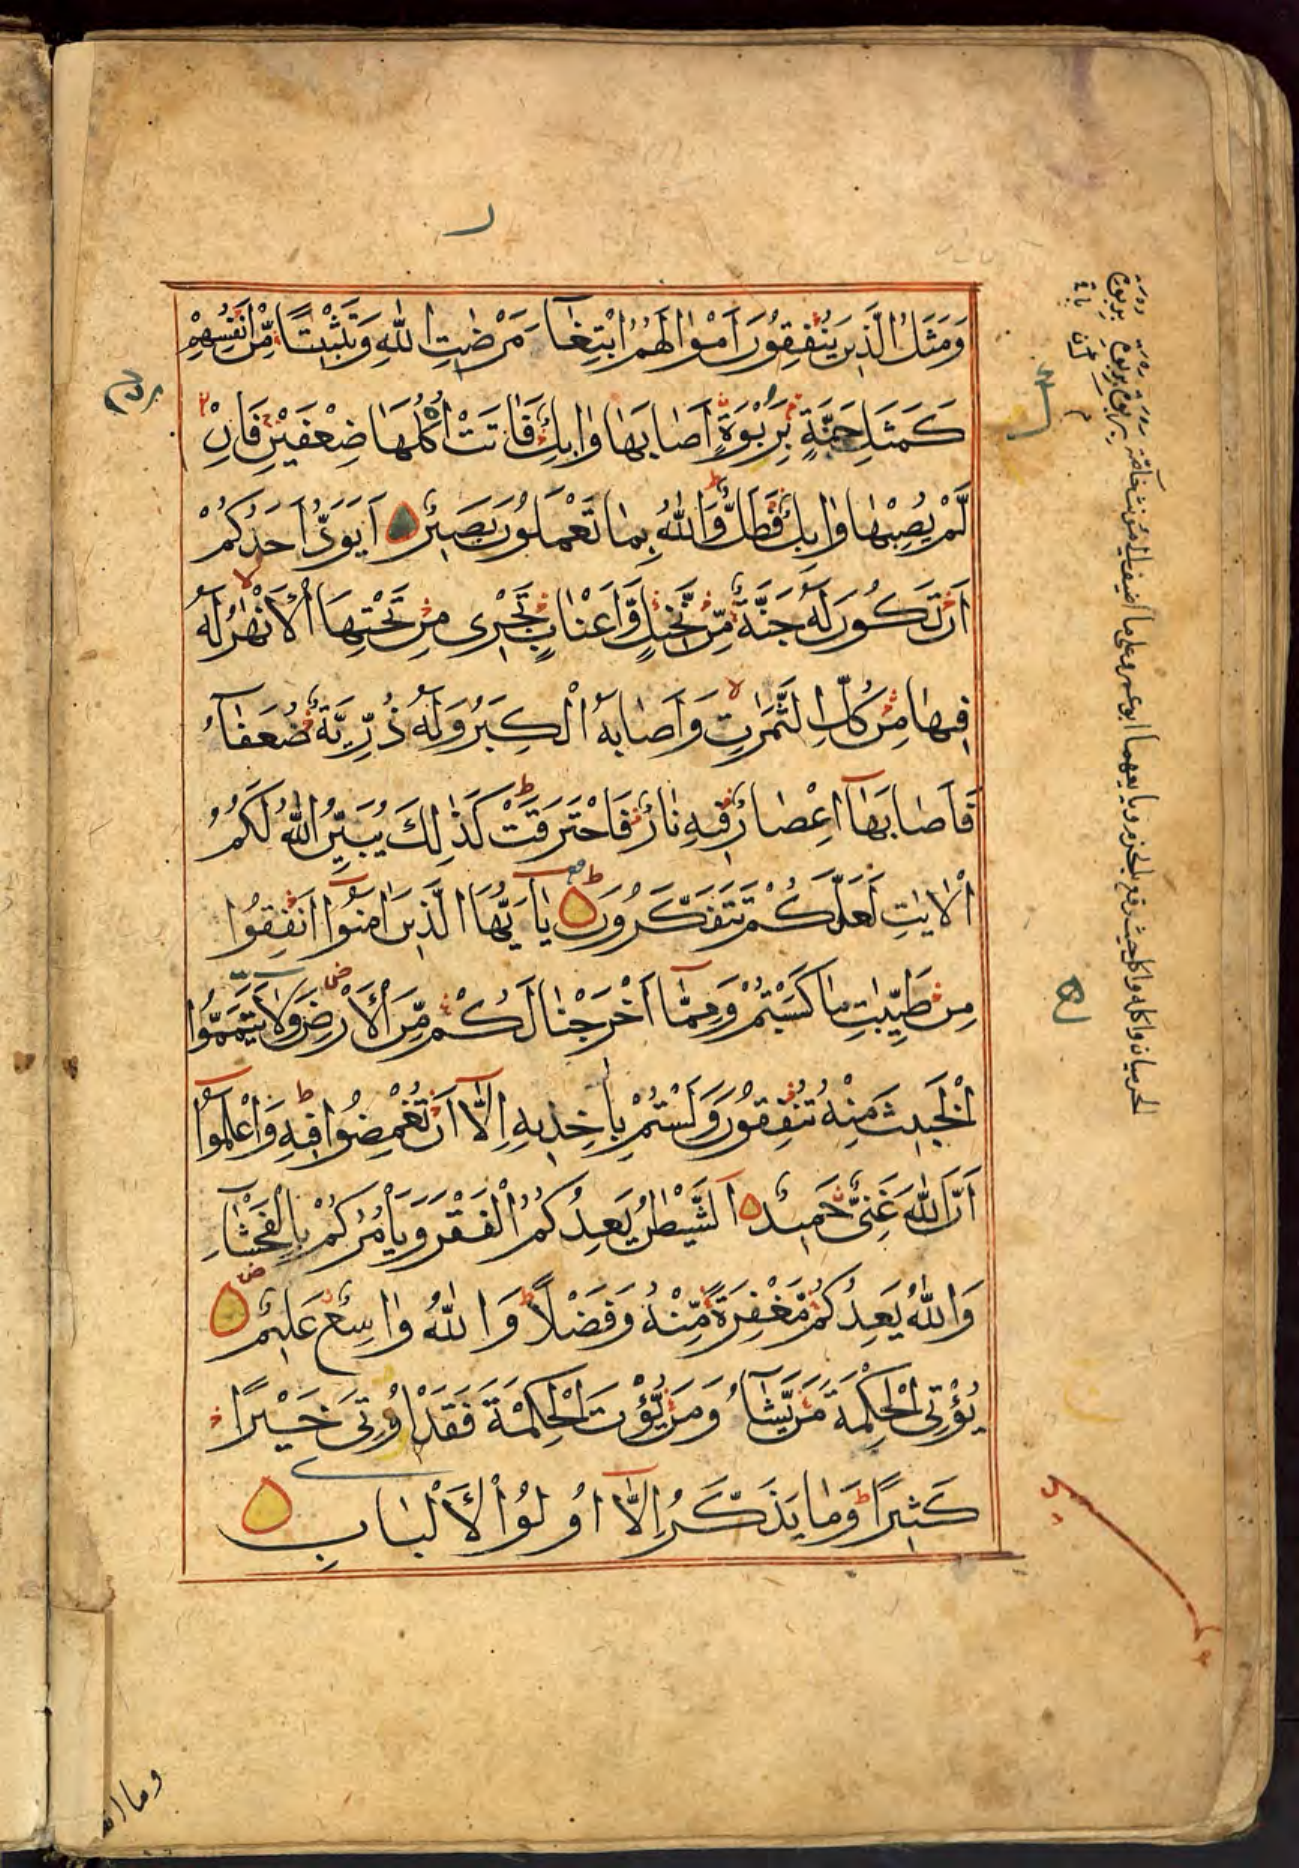 وَمَثَلُ الَّذِينَ يُنْفِقُونَ اَمْوٰالَهُمُ ابْتِغٰآءَ مَرْضٰاتِ اللّٰهِ وَتَثْبِيتًا مِّنْ اَنْفُسِهِمْ
كَمَثَلِ جَنَّةٍ بِرَبْوَةٍ اَصٰابَهٰا وٰابِلٌ فَاٰتَتْ اُكُلَهٰا ضِعْفَيْنِ فَاِنْ
لَّمْ يُصِبْهٰا وٰابِلٌ فَطَلٌّ وَاللّٰهُ بِمٰا تَعْمَلُونَ بَصِيرٌ اَيَوَدُّ اَحَدُكُمْ
اَنْ تَكُونَ لَهُ جَنَّةٌ مِّنْ نَّخِيلٍ وَّاَعْنٰابٍ تَجْرِى مِنْ تَحْتِهَا الْاَنْهٰرُ لَهُ
فِيهٰا مِنْ كُلِّ الثَّمَرٰتِ وَاَصٰابَهُ الْكِبَرُ وَلَهُ ذُرِّيَّةٌ ضُعَفٰآءُ
فَاَصٰابَهٰآ اِعْصٰارٌ فِيهِ نٰارٌ فَاحْتَرَقَتْ كَذٰلِكَ يُبَيِّنُ اللّٰهُ لَكُمُ
الْاٰيٰتِ لَعَلَّكُمْ تَتَفَكَّرُونَ يٰآ اَيُّهَا الَّذِينَ اٰمَنُوٓا اَنْفِقُوا
مِنْ طَيِّبٰتِ مٰا كَسَبْتُمْ وَمِمّٰآ اَخْرَجْنٰا لَكُمْ مِّنَ الْاَرْضِ وَلٰا تَيَمَّمُوا
الْخَبِيثَ مِنْهُ تُنْفِقُونَ وَلَسْتُمْ بِاٰخِذِيهِ اِلّٰآ اَنْ تُغْمِضُوا فِيهِ وَاعْلَمُوٓا
اَنَّ اللّٰهَ غَنِىٌّ حَمِيدٌ اَلشَّيْطٰنُ يَعِدُكُمُ الْفَقْرَ وَيَاْمُرُكُمْ بِالْفَحْشٰآءِ
وَاللّٰهُ يَعِدُكُمْ مَّغْفِرَةً مِّنْهُ وَفَضْلًا وَاللّٰهُ وٰاسِعٌ عَلِيمٌ
يُؤْتِى الْحِكْمَةَ مَنْ يَّشٰآءُ وَمَنْ يُّؤْتَ الْحِكْمَةَ فَقَدْ اُوتِىَ خَيْرًا
كَثِيرًا وَمٰا يَذَّكَّرُ اِلّٰآ اُولُوا الْاَلْبٰابِ
الحرميان واكله واكل حيث وقع بالجزم ويابعهما ابو عمرو على ما اضيف الى مؤنث خاصة